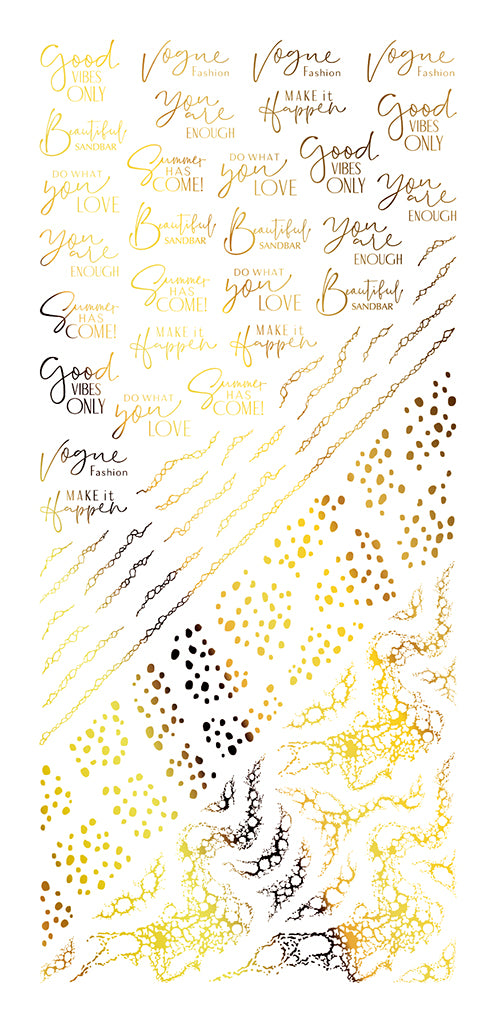 Good
VIBES
ONLY
Vogue
Fashion
Vogue
Fashion
Vogue
Fashion
You
are
ENOUGH
MAKE it
Happen
Good
VIBES
ONLY
Beautiful
SANDBAR
Summer
HAS
COME!
DO WHAT
you
LOVE
Good
VIBES
ONLY
DO WHAT
you
LOVE
You
are
ENOUGH
Beautiful
SANDBAR
Beautiful
SANDBAR
You
are
ENOUGH
You
are
ENOUGH
Summer
HAS
COME!
DO WHAT
you
LOVE
Beautiful
SANDBAR
Summer
HAS
COME!
MAKE it
Happen
MAKE it
Happen
Good
VIBES
ONLY
DO WHAT
you
LOVE
Summer
HAS
COME!
Vogue
Fashion
MAKE it
Happen